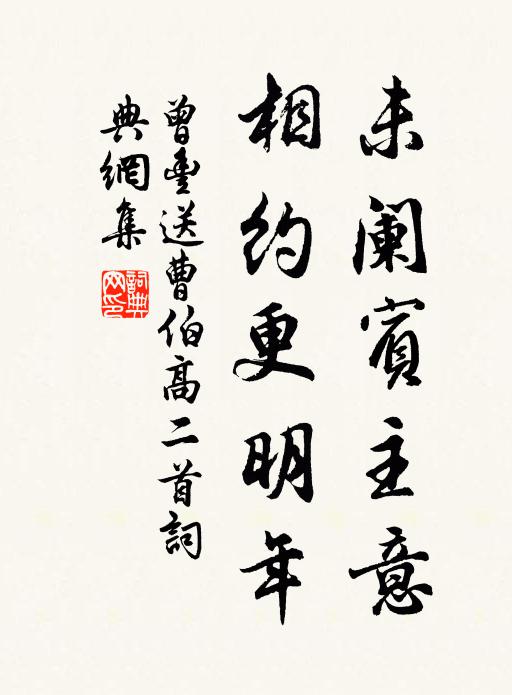 未阑賓主意
相約更明年
曾豊送曹伯高二首詞
典網集
詞典网印